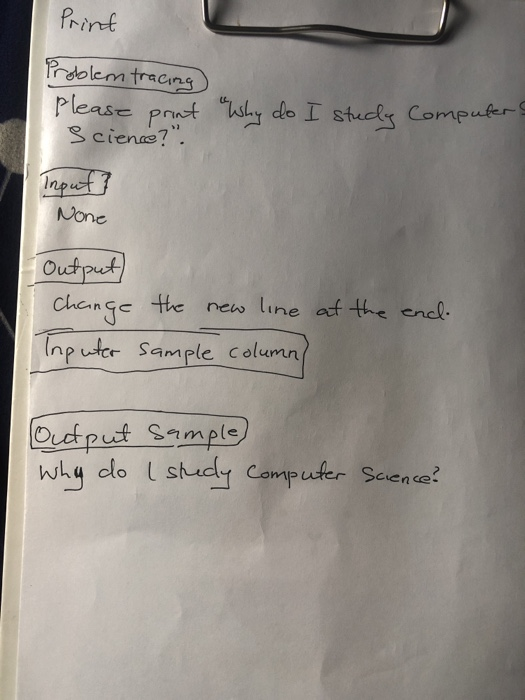 Print
Problem tracing
Please print "Why do I study Computer
Science?".
Input?
None
Output
Change the new line at the end.
Inputer Sample column
Output Sample
Why do I study Computer Science?